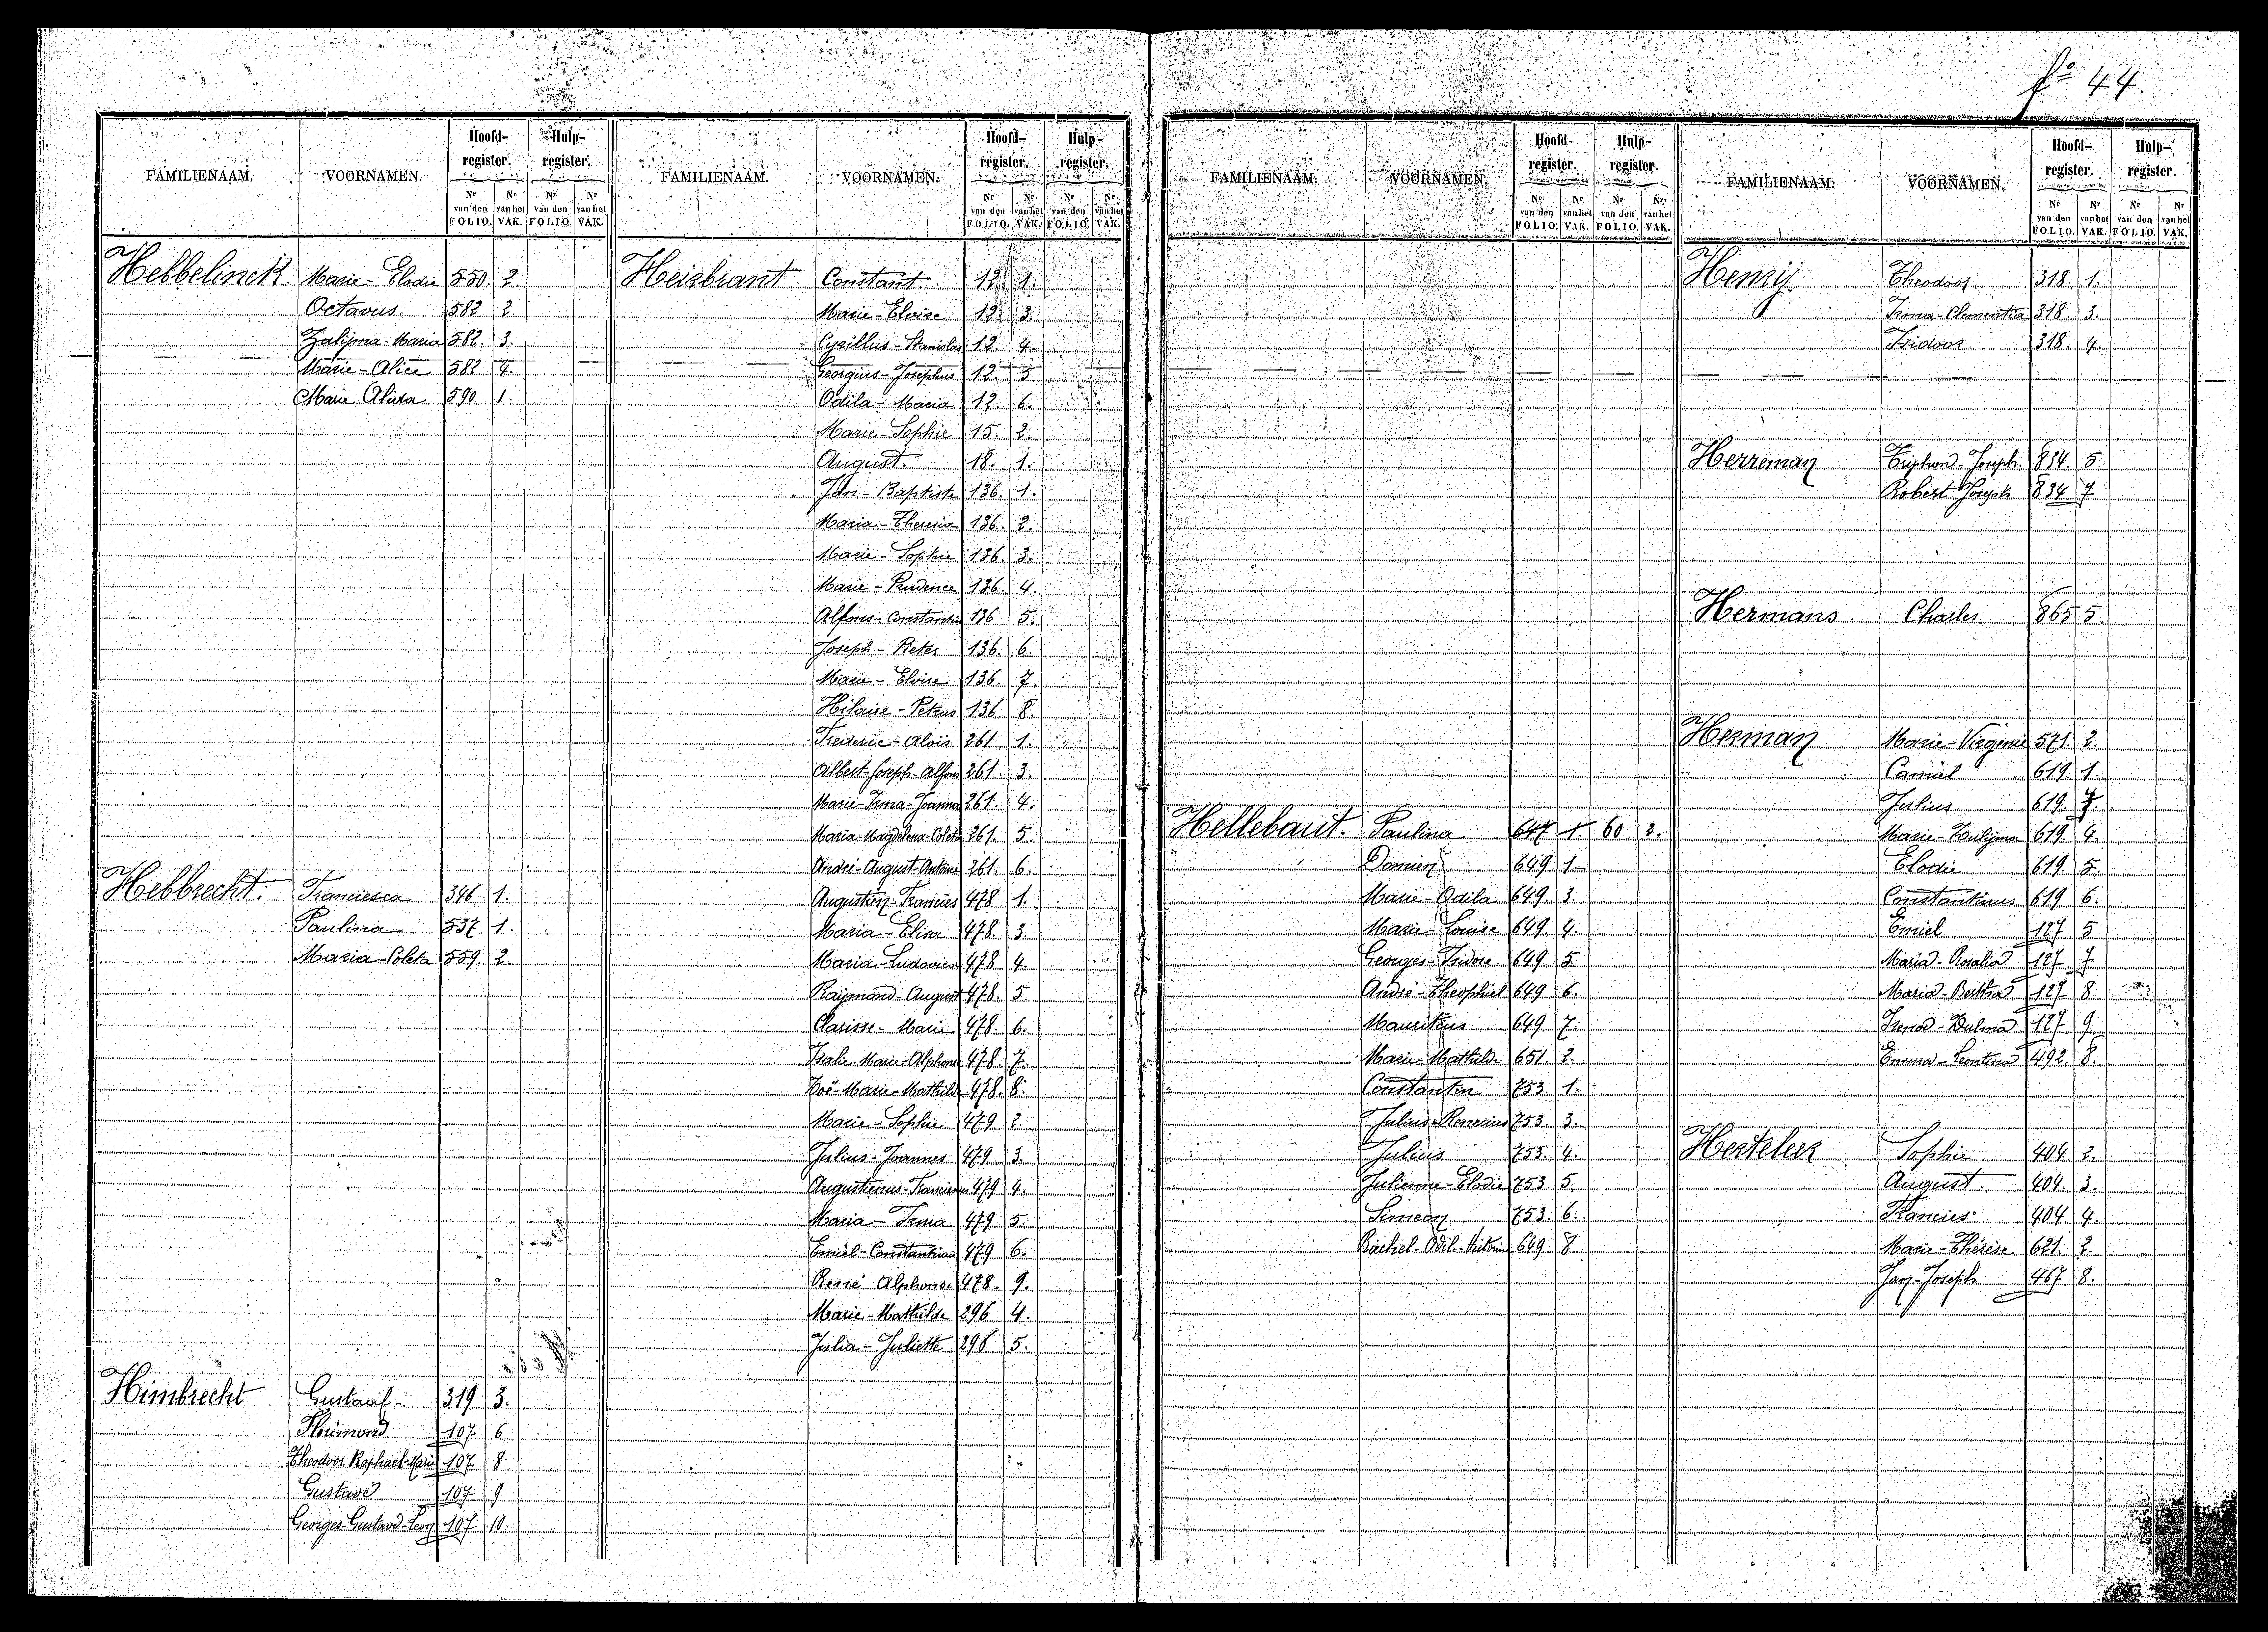 fº 44.
FAMILIENAAM. VOORNAMEN. Hoofd-register. Hulp-register.
Nr van den FOLIO. Nr van het VAK. Nr van den FOLIO. Nr van het VAK.
Hebbelinck Marie-Elodie 550. 2.
Octavus 582 2
Zulijma-Maria 582. 3.
Marie-Alice 582 4.
Marie Alida 590 1.
Hebbrecht. Franciesca 346 1.
Paulina 537 1.
Maria-Coleta 559. 2.
Himbrecht Gustaaf- 319 3.
107 6
Theodoor Raphael-Marie 107 8
Gustave 107 9
Georges-Gustave-Leon 107 10.
FAMILIENAAM. VOORNAMEN. Hoofd-register. Hulp-register.
Nr van den FOLIO. Nr van het VAK. Nr van den FOLIO. Nr van het VAK.
Heirbrant Constant 12 1.
Marie-Eloise 12 3.
Cyrillus-Stanislas 12 4.
Georgius-Josephus 12. 5
Odila-Maria 12. 6.
Marie-Sophie 15. 2.
August. 18. 1.
Jan-Baptiste 136. 1.
Maria-Theresia 136. 2.
Marie-Sophie 136. 3.
Marie-Prudence 136. 4.
Alfons-Constantin 136 5.
Joseph-Pieter 136. 6.
Marie-Eloise 136. 7.
Hilaire-Petrus 136. 8.
Frederic-Alois 261 1.
Albert-Joseph-Alfons 261. 3.
Marie-Irma-Joanna 261. 4.
Maria-Magdelena-Coleta 261. 5.
André-August-Antoine 261. 6.
Augustien-Francies 478 1.
Maria-Elisa 478. 3.
Maria-Ludovica 478 4.
Raymond-August 478. 5.
Clarisse-Marie 478. 6.
Isalie-Marie-Alphonse 478. 7.
Zoë-Marie-Mathilde 478. 8.
Marie-Sophie 479 2.
Julius-Joannes 479 3.
Augustinus-Franciscus 479 4.
Maria-Irma 479 5.
Emiel-Constantinus 479 6.
René Alphonse 478. 9.
Marie-Mathilde 296 4.
Julia-Juliette 296 5.
FAMILIENAAM. VOORNAMEN. Hoofd-register. Hulp-register.
Nr. van den FOLIO. Nr. van het VAK. Nr. van den FOLIO. Nr. van het VAK.
Hellebaut. Paulina 647 1 60 2.
Domien 649 1
Marie-Odila 649. 3.
Marie-Louise 649. 4.
Georges-Isidore 649 5
André-Theophiel 649 6.
Mauritius 649. 7.
Marie-Mathilde 651. 2.
Constantin 753. 1.
Julius-Remerius 753. 3.
Julius 753. 4.
Julienne-Elodie 753. 5
Simeon 753. 6.
Rachel-Odil.-Victorine 649 8
FAMILIENAAM. VOORNAMEN. Hoofd-register. Hulp-register.
Nr van den FOLIO. Nr van het VAK. Nr van den FOLIO. Nr van het VAK.
Henrij Theodoor 318. 1.
Irma-Clementia 318. 3.
Isidoor 318. 4.
Herreman Triphon-Joseph. 834 5
Robert Joseph 834 7
Hermans Charles 865 5
Herman Marie-Virgenie 571. 2.
Camiel 619 1.
Julius 619. 3.
Marie-Zulijma 619. 4.
Elodie 619. 5.
Constantinus 619 6.
Emiel 127 5
Maria-Rosalia 127 7
Maria-Bertha 127 8
Irena-Zulma 127 9
Emma-Leontina 492. 8.
Herteleer Sophie 404. 2.
August. 404. 3.
Francies 404. 4.
Marie-Thérèse 621. 2.
Jan-Joseph 467 8.